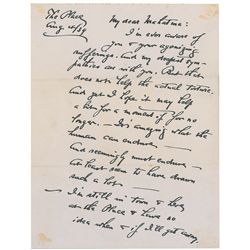 The Place
Aug 16/39
My dear Mahatma:
I'm ever aware of
you & your agonizing
sufferings. And my deepest sym-
pathies are with you. But that
does not help the actual torture.
And yet I hope it may help
a bit for a moment if for no
longer. — It's amazing what the
human can endure —
And seemingly must endure. —
At least seem to have drawn
such a lot —
— I'm still in town & living
at the Place & have no
idea when & if I'll get away.